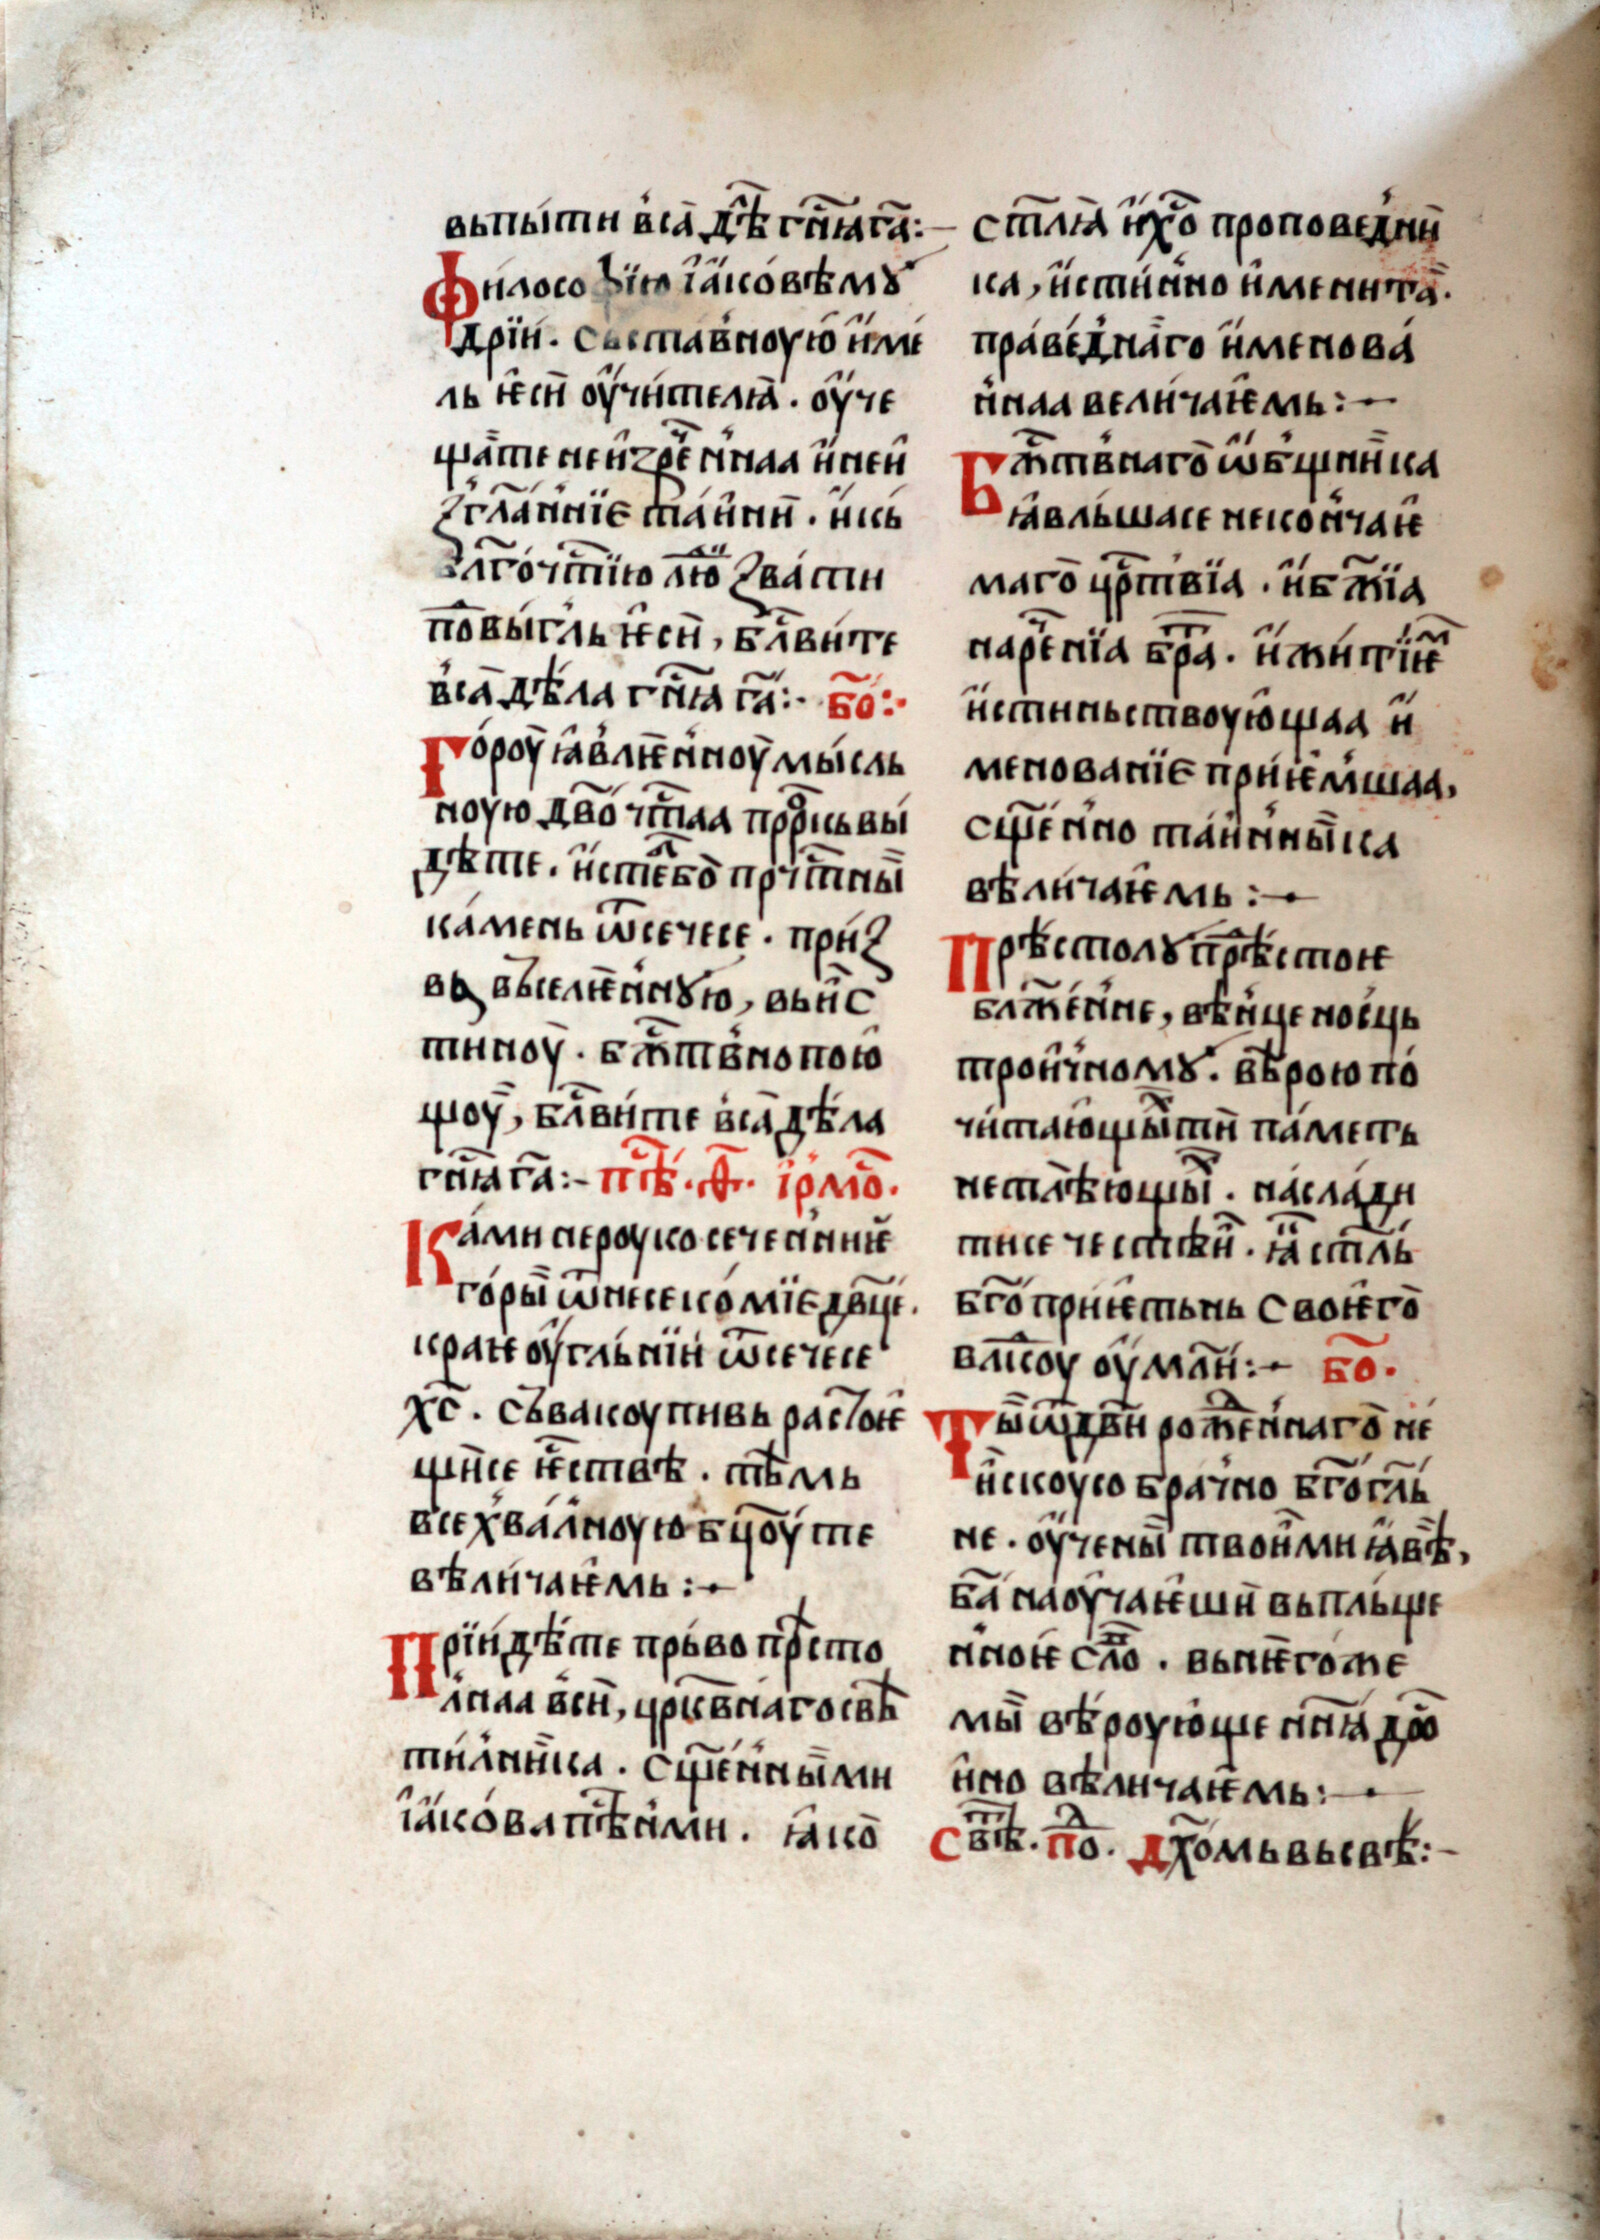 вьпы́ти в҆са̀ дѣ҄ гн҃ꙗ га҃:–
Фи́лосо фїю і҆а҆ко́вѣ мꙋ
дрїи. сьставноую и҆мѣ
ль ѥ҆си оу҆чи́телꙗ. оу҆че
ща́те неиꙁре́ннаа и҆неи
ꙁгла́нниїе та́инни. и҆сь
бл҃го́чтїю лю҃ ꙁва́сти
по҃вы́гль ѥ҆си, бл҃ви́те
в҆са̀ дѣ́ла гн҃ꙗ га҃:· бо҃:·
Го́роу ꙗ҆влѥ́нноу мы́сль
ноую дв҃о чт҃наа пр҃ркь вы́
дѣ́те. и҆сте҃бо пр҃чтны
ка́мень ѿсе́чесе. при́ꙁ
вь вьселѥ́ннꙋю, вьи҆с
тиноу. бж҃тв҆но пою҆
щоу, бл҃ви́те в҆са̀ дѣ́ла
гн҃ꙗ га҃:– пѣ҃. ѳ҃. ірмо҃.
Ка́ми нероуко сече́нниѥ
го́ры ѿнесеко́мїе дв҃це.
краѥоу҆гль́нїи ѿсе́чесе
хс҃. сьвакоупивь растоѥ
щи́се ѥ҆ства. тѣ́мь
в҆сехва́лноую бц҃оу те
вѣли́чаѥмь:–
Прїидѣ́те прь́во пр҃ѣсто
л҆наа в҆си, цр҃кв҆наго свѣ
ти́лника. сщ҃е́нными
і҆а҆ко́ва пѣ҃сми. ꙗ҆ко
ст҃лꙗ и҆х҃о проповѣ́дни
ка, и҆сти́нно и҆мени́та.
пра́вѣднаго и҆менова́
ннаа вели́чаѥмь:–
Бж҃тв҆наго ѡ҆бщни́ка
ꙗ҆вль́шасе неконча́ѥ
маго цр҃твїа. и҆ бж҃їа
наре҃нїа бра҃. и҆ жи́тїѥ
и҆стиньствоующаа и҆
менованїе приѥ́мшаа,
сщ҃е́нно таинны́ка
вѣли́чаѥмь:–
Прѣстолꙋ прѣ҃стоѥ
блж҃е́нне, вѣ́нце носць
тро́ичномꙋ. вѣ́рою по
чита́ющы ти па́меть
нетлѣ́ющы. насла́ди
тисе че́стѣи. ꙗ҆ ст҃ль
бг҃о приѥ́тьнь своѥ́го
вл҃коу оу҆мл҃и:– бо҃.
Ты ѿ дв҃и рожде́ннаго не
и҆скоусо бра́чно бг҃огль
не. оу҆чены́ твои́ми ꙗ҆вѣ,
ба҃ наоу҆чаѥши вьпль́ще
нноѥ сло҃. вьнѥ́гоже
мы вѣ́роующе нн҃ꙗ до҃
и҆но вѣли́чаѥмь:–
Свѣ҃. по҃. дх҃омь вьсвѣ:–